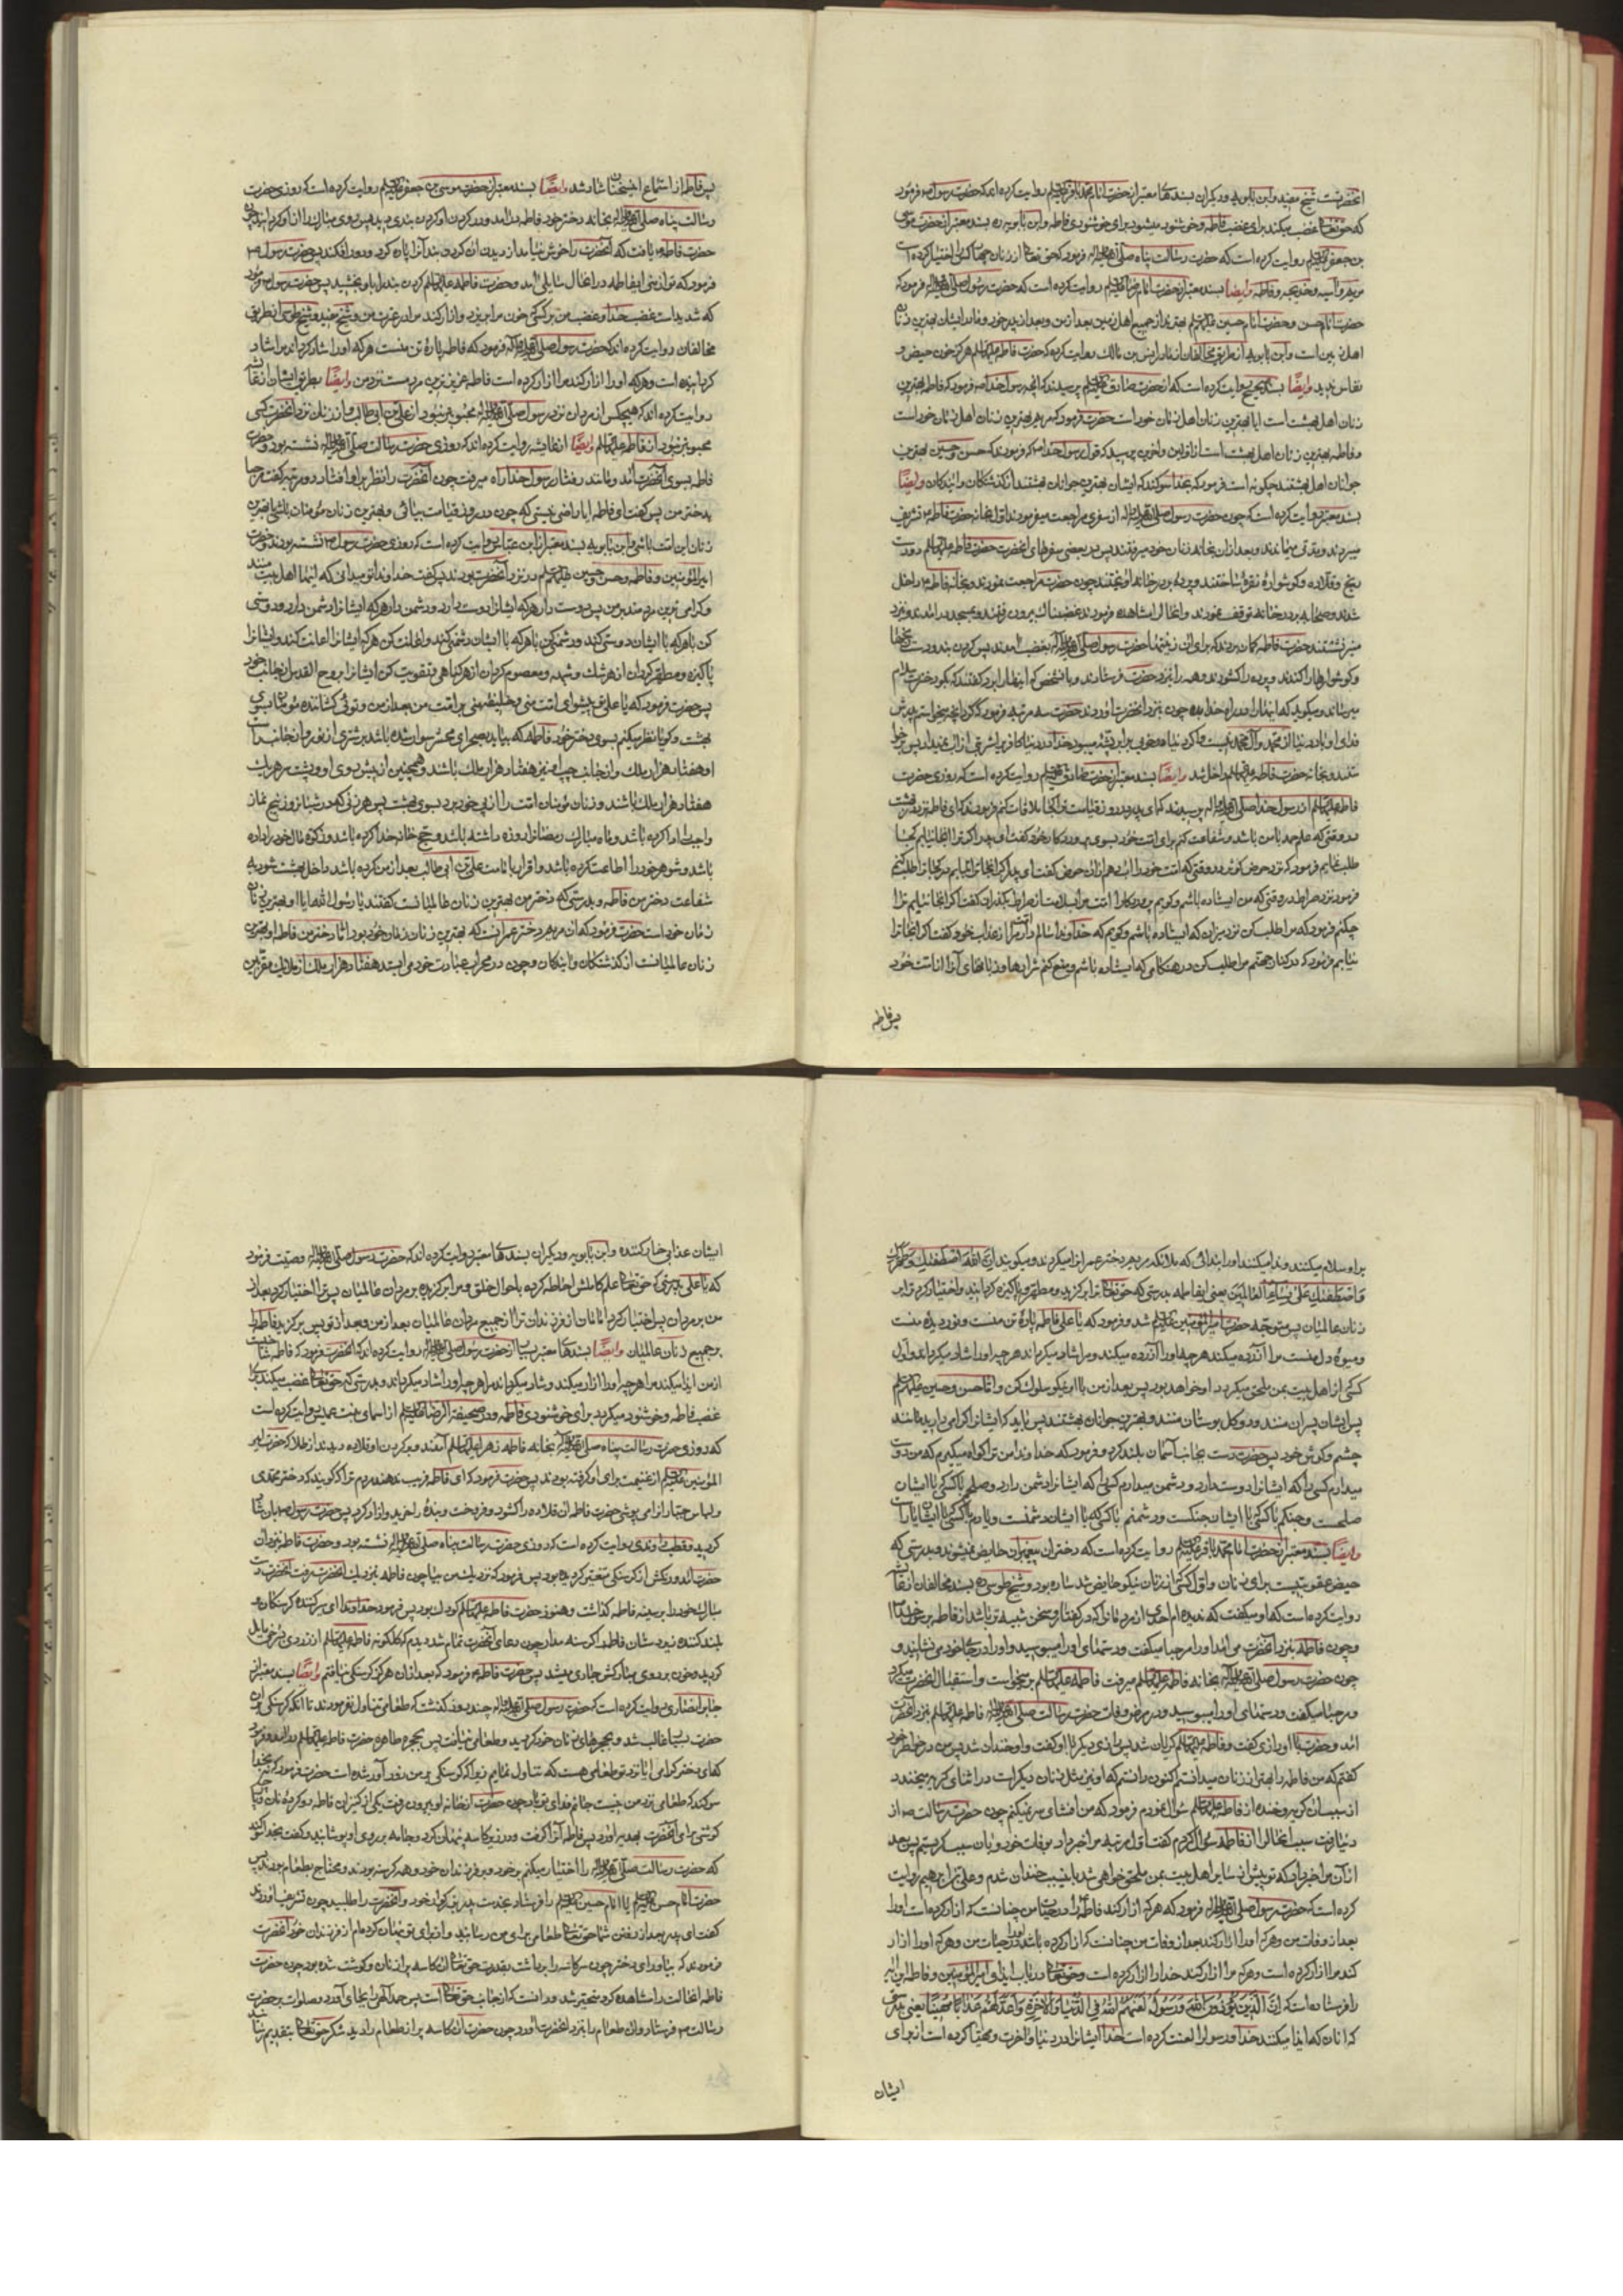 آنحضرتست شیخ مفید و ابن بابویه و دیگران بسندهای معتبر از حضرت امام محمد باقر علیه السلام روایت کرده اند که حضرت رسول ص فرمود
که حق تعالی غضب میکند برای غضب فاطمه و خوشنود میشود برای خوشنودی فاطمه و ابن بابویه ره بسند معتبر از حضرت موسی
بن جعفر علیه السلام روایت کرده است که حضرت رسالت پناه صلی الله علیه و آله فرمود که حق تعالی از زنان چهار کس را اختیار کرده است
مریم و آسیه و خدیجه و فاطمه وایضا بسند معتبر از حضرت امام رضا علیه السلام روایت کرده است که حضرت رسول صلی الله علیه و آله فرمود که
حضرت امام حسن و حضرت امام حسین علیهما السلام بهترند از جمیع اهل زمین بعد از من و بعد از پدر خود و مادر ایشان بهترین زنان
اهل زمین است و ابن بابویه از طریق مخالفان از انس بن مالک روایت کرده که حضرت فاطمه علیها السلام هرگز خون حیض و
نفاس ندید وایضا بسند صحیح روایت کرده است که از حضرت صادق علیه السلام پرسیدند که آنچه رسول خدا ص فرمود که فاطمه بهترین
زنان اهل بهشت است آیا بهترین زنان اهل زمان خود است حضرت فرمود که مریم بهترین زنان اهل زمان خود است
و فاطمه بهترین زنان اهل بهشت است از اولین و آخرین پرسید که قول رسول خدا ص که فرمودند که حسن و حسین بهترین
جوانان اهل بهشتند چگونه است فرمود که بخدا سوگند که ایشان بهترین جوانان بهشتند از گذشتگان و آیندگان وایضا
بسند معتبر روایت کرده است که چون حضرت رسول صلی الله علیه و آله از سفری مراجعت میفرمودند اول بخانه حضرت فاطمه ع تشریف
میبردند و مدتی میماندند و بعد از آن بخانه زنان خود میرفتند پس در بعضی سفرهای آنحضرت حضرت فاطمه علیها السلام دو دست
رنج و قلاده و گوشواره نقره ساختند و پرده بر در خانه آویختند چون حضرت مراجعت نمودند و بخانه فاطمه ع داخل
شدند و صحابه بر در خانه توقف نمودند و آنحال را مشاهده فرمودند غضبناک بیرون رفتند و بمسجد در آمدند و نزد
منبر نشستند حضرت فاطمه گمان بردند که برای این زینتها حضرت رسول صلی الله علیه و آله بغضب آمدند پس گردن بند و دست رنجها
و گوشوارها را کندند و پرده را گشودند و همه را بنزد حضرت فرستادند و بآنشخص که اینها را برد گفتند که بگو دخترت سلام
میرساند و میگوید که اینها را در راه خدا بده چون بنزد آنحضرت آوردند حضرت سه مرتبه فرمود که کرد آنچه میخواستم پدرش
فدای او باد دنیا از محمد و آل محمد نیست
شدند و بخانه حضرت فاطمه علیها السلام داخل شد وایضا بسند معتبر از حضرت صادق علیه السلام روایت کرده است که روزی حضرت
فاطمه علیها السلام از رسول خدا صلی الله علیه و آله پرسیدند که ای پدر در روز قیامت ترا کجا ملاقات کنم فرمودند که ای فاطمه نزد در بهشت
در وقتی که علم حمد با من باشد و شفاعت کنم برای امت خود بسوی پروردگار خود گفت ای پدر اگر ترا آنجا نیابم کجا
طلب نمایم فرمود که نزد حوض کوثر در وقتی که امت خود را آب دهم از آن حوض گفت ای پدر اگر آنجا ترا نیابم در کجا ترا طلب کنم
فرمود نزد صراط در وقتی که من ایستاده باشم و گویم پروردگارا امت مرا بسلامت از صراط بگذران گفت اگر آنجا نیابم ترا
چکنم فرمود که مرا طلب کن نزد میزان که ایستاده باشم و گویم که خداوندا سالم دار امت مرا از عذاب خود گفت اگر آنجا ترا
نیابم فرمود که در کنار جهنم مرا طلب کن در هنگامی که ایستاده باشم و منع کنم شرارها و زبانهای آنرا از امت خود
پس فاطمه
پس فاطمه از استماع این سخنان شاد شد وایضا بسند معتبر از حضرت موسی بن جعفر علیهما السلام روایت کرده است که روزی حضرت
رسالت پناه صلی الله علیه و آله بخانه دختر خود فاطمه در آمد و در گردن او گردن بندی دید پس روی مبارک را از او گردانید چون
حضرت فاطمه ع یافت که آنحضرت را خوش نیامد از دیدن آن گردن بند آنرا پاره کرد و دور افکند پس حضرت رسول ص
فرمود که تو از منی ای فاطمه در آنحال سائلی آمد و حضرت فاطمه علیها السلام گردن بند را باو بخشید پس حضرت رسول ص فرمود
که شدید است غضب خدا و غضب من بر کسی که خون مرا بریزد و آزار کند مرا در عترت من و شیخ مفید و شیخ طوسی از طریق
مخالفان روایت کرده اند که حضرت رسول صلی الله علیه و آله فرمود که فاطمه پاره تن منست هر که او را شاد گرداند مرا شاد
گردانیده است و هر که او را آزار کند مرا آزار کرده است فاطمه عزیزترین مردمست نزد من وایضا بطریق ایشان از عایشه
روایت کرده اند که هیچکس از مردان نزد رسول صلی الله علیه و آله محبوبتر نبود از علی بن ابی طالب و از زنان نزد آنحضرت کسی
محبوبتر نبود از فاطمه علیها السلام وایضا از عایشه روایت کرده اند که روزی حضرت رسالت صلی الله علیه و آله نشسته بود و حضرت
فاطمه بسوی آنحضرت آمد و مانند رفتار رسول خدا راه میرفت چون آنحضرت را نظر بر او افتاد دو مرتبه گفت مرحبا
بدختر من پس گفت ای فاطمه آیا راضی نیستی که چون در روز قیامت بیائی و بهترین زنان مؤمنان باشی یا بهترین
زنان این امت باشی و ابن بابویه بسند معتبر از ابن عباس روایت کرده است که روزی حضرت رسول ص نشسته بودند و حضرت
امیرالمؤمنین و فاطمه و حسن و حسین علیهم السلام در نزد آنحضرت بودند پس گفت خداوندا تو میدانی که اینها اهل بیت منند
و گرامی ترین مردمند بر من پس دوست دار هر که ایشانرا دوست دارد و دشمن دار هر که ایشانرا دشمن دارد و دوستی
کن با هر که با ایشان دوستی کند و دشمنی کن با هر که با ایشان دشمنی کند و اعانت کن هر که ایشانرا اعانت کند و ایشانرا
پاکیزه و مطهر گردان از هر شک و شبهه و معصوم گردان از هر گناهی و تقویت کن ایشانرا بروح القدس از جانب خود
پس حضرت فرمود که یا علی تو پیشوای امت منی و خلیفه منی بر امت من بعد از من و توئی کشاننده مؤمنان بسوی
بهشت و گویا نظر میکنم بسوی دختر خود فاطمه که بیاید بصحرای محشر سوار شده باشد بر شتری از نور و از جانب راست
او هفتاد هزار ملک و از جانب چپ او نیز هفتاد هزار ملک باشند و همچنین از پیش روی او و پشت سر هر یک
هفتاد هزار ملک باشند و زنان مؤمنان امت را از پی خود برد بسوی بهشت پس هر زنی که در شبانروز پنج نماز
واجب را ادا کرده باشد و ماه مبارک رمضانرا روزه داشته باشد و حج خانه خدا کرده باشد و زکوة مال خود را داده
باشد و شوهر خود را اطاعت کرده باشد و اقرار بامامت علی بن ابی طالب بعد از من کرده باشد داخل بهشت شود به
شفاعت دختر من فاطمه و بدرستی که دختر من بهترین زنان عالمیانست گفتند یا رسول الله آیا او بهترین زنان
زمان خود است حضرت فرمود که آن مریم دختر عمرانست که بهترین زنان زمان خود بود اما دختر من فاطمه او بهترین
زنان عالمیانست از گذشتگان و آیندگان و چون در محراب عبادت خود می ایستد هفتاد هزار ملک از ملائکه مقربین
بر او سلام میکنند و ندا میکنند او را بندائی که ملائکه مریم دختر عمران را میکردند و میگویند ان الله اصطفیک و طهرک
و اصطفیک علی نساء العالمین یعنی ای فاطمه بدرستی که حق تعالی ترا برگزید و مطهر و پاکیزه گردانید و اختیار کرد ترا بر
زنان عالمیان پس متوجه حضرت امیرالمؤمنین علیه السلام شد و فرمود که یا علی فاطمه پاره تن منست و نور دیده منست
و میوه دل منست مرا آزرده میکند هر چه او را آزرده میکند و مرا شاد میگرداند هر چه او را شاد میگرداند و اول
کسی از اهل بیت بمن ملحق میگردد او خواهد بود پس بعد از من با او نیکو سلوک کن و اما حسن و حسین علیهما السلام
پس ایشان پسران منند و دو گل بوستان منند و بهترین جوانان بهشتند پس باید که ایشانرا گرامی دارید مانند
چشم و گوش خود پس حضرت دست بجانب آسمان بلند کرد و فرمود که خداوندا من ترا گواه میگیرم که من دوست
میدارم کسی را که ایشانرا دوست دارد و دشمن میدارم کسی را که ایشانرا دشمن دارد و صلحم با کسی که با ایشان
صلحست و جنگم با کسی که با ایشان جنگست و دشمنم با کسی که با ایشان دشمنست و یارم با کسی که با ایشان یار است
وایضا بسند معتبر از حضرت امام محمد باقر علیه السلام روایت کرده است که دختران پیغمبران حایض نمیشوند و بدرستی که
حیض عقوبتیست برای زنان و اول کسی از زنان که حایض شد ساره بود و شیخ طوسی ره بسند مخالفان از عایشه
روایت کرده است که او میگفت که ندیده ام احدی از مردمان را که در گفتار و سخن شبیه تر باشد از فاطمه برسول خدا
و چون فاطمه بنزد آنحضرت می آمد او را مرحبا میگفت و دستهای او را میبوسید و او را در جای خود می نشانید و
چون حضرت رسول صلی الله علیه و آله بخانه فاطمه علیها السلام میرفت فاطمه علیها السلام بر میخواست و استقبال آنحضرت میکرد
و مرحبا میگفت و دستهای او را میبوسید و در مرض وفات حضرت رسالت صلی الله علیه و آله فاطمه علیها السلام بنزد آنحضرت
آمد و حضرت با او رازی گفت و فاطمه علیها السلام گریان شد پس رازی دیگر با او گفت و او خندان شد پس من در خاطر خود
گفتم که من فاطمه را بهتر از زنان میدانستم اکنون دانستم که او نیز مثل زنان دیگر است در اثنای گریه میخندد
از سبب آن گریه و خنده از فاطمه علیها السلام سؤال نمودم فرمود که من افشای سر نمیکنم چون حضرت رسالت ص از
دنیا رفت سبب آنحال را از فاطمه سؤال کردم گفت اول مرتبه مرا خبر داد بوفات خود و بآن سبب گریستم پس بعد
از آن مرا خبر داد که تو پیش از سایر اهل بیت بمن ملحق خواهی شد باین سبب خندان شدم و علی بن ابراهیم روایت
کرده است که حضرت رسول صلی الله علیه و آله فرمود که هر که آزار کند فاطمه را در حیات من چنانست که آزار کرده است او را
بعد از وفات من و هر که او را آزار کند بعد از وفات من چنانست که آزار کرده باشد او را در حیات من و هر که او را آزار
کند مرا آزار کرده است و هر که مرا آزار کند خدا را آزار کرده است و حق تعالی در باب ایذای امیرالمؤمنین و فاطمه این آیه
را فرستاده است که ان الذین یؤذون الله و رسوله لعنهم الله فی الدنیا و الآخرة و اعد لهم عذابا مهینا یعنی بدرستی
که آنان که ایذا میکنند خدا و رسول را لعنت کرده است خدا ایشانرا در دنیا و آخرت و مهیا کرده است از برای
ایشان
ایشان عذابی خوار کننده و ابن بابویه و دیگران بسندهای معتبر روایت کرده اند که حضرت رسول صلی الله علیه و آله وصیت فرمود
که یا علی بدرستی که حق تعالی علم کاملش احاطه کرده باحوال خلق و مرا برگزیده بر مردان عالمیان پس ترا اختیار کرد بعد از
من بر مردان پس اختیار کرد امامان از فرزندان ترا از جمیع مردان عالمیان بعد از من و بعد از تو پس برگزید فاطمه را
بر جمیع زنان عالمیان وایضا بسندهای معتبر بسیار از حضرت رسول صلی الله علیه و آله روایت کرده اند که آنحضرت فرمود که فاطمه شاخیست
از من ایذا میکند مرا هر چه او را آزار میکند و شاد میگرداند مرا هر چه او را شاد میگرداند و بدرستی که حق تعالی غضب میکند برای
غضب فاطمه و خوشنود میگردد برای خوشنودی فاطمه و در صحیفة الرضا علیه السلام از اسمای بنت عمیس روایت کرده است
که روزی حضرت رسالت پناه صلی الله علیه و آله بخانه فاطمه زهرا علیها السلام آمدند و در گردن او قلاده دیدند از طلا که حضرت امیر
المؤمنین علیه السلام از غنیمت برای او گرفته بودند پس حضرت فرمود که ای فاطمه فریب ندهند مردم ترا که گویند که دختر محمدی
و لباس جباران می پوشی حضرت فاطمه آن قلاده را گشود و فروخت و بنده را خرید و آزاد کرد پس حضرت رسول ص بآن شاد
گردید و قطب راوندی روایت کرده است که روزی حضرت رسالت پناه صلی الله علیه و آله نشسته بود و حضرت فاطمه بنزد آن
حضرت آمد و رنگش از گرسنگی متغیر گردیده بود پس فرمود که نزدیک من بیا چون فاطمه بنزدیک آنحضرت رفت آنحضرت دست
مبارک خود را بر سینه فاطمه گذاشت و هنوز حضرت فاطمه علیها السلام کودک بود پس فرمود خداوندا ای سیر کننده گرسنگان و
بلند کننده فرود شدگان فاطمه را گرسنه مدار چون دعای آنحضرت تمام شد دیدم که گلگونه فاطمه علیها السلام از زردی بسرخی مایل
گردید و خون بر روی مبارکش جاری میشد پس حضرت فاطمه ع فرمود که بعد از آن هرگز گرسنگی نیافتم وایضا بسند معتبر از
جابر انصاری روایت کرده است که حضرت رسول صلی الله علیه و آله چند روز گذشت که طعامی تناول نفرمودند تا آنکه گرسنگی بر آن
حضرت بسیار غالب شد و بحجرهای زنان خود گردید و طعامی نیافت پس بحجره طاهره حضرت فاطمه علیها السلام در آمد و فرمود
که ای دختر گرامی آیا نزد تو طعامی هست که تناول نمایم زیرا که گرسنگی بر من زور آورده است حضرت فرمود که نه بخدا
سوگند که طعامی نزد من نیست جانم فدای تو باد چون حضرت از خانه او بیرون رفت یکی از کنیزان فاطمه دو گرده نان و پاره
گوشتی برای آنحضرت بهدیه آورد پس فاطمه آنرا گرفت و در زیر کاسه پنهان کرد و جامه بر روی او پوشانید و گفت بخدا سوگند
که حضرت رسالت صلی الله علیه و آله را اختیار میکنم بر خود و بر فرزندان خود و همه گرسنه بودند و محتاج بطعام بودند پس
حضرت امام حسن علیه السلام یا امام حسین علیه السلام را فرستاد بخدمت پدر بزرگوار خود و آنحضرت را طلبید چون تشریف آوردند
گفت ای پدر بعد از رفتن شما حق تعالی طعامی برای من رسانید و از برای تو پنهان کرده ام از فرزندان خود آنحضرت
فرمودند که بیاور ای دختر چون سر کاسه را برداشت بقدرت حق تعالی آن کاسه پر از نان و گوشت شده بود چون حضرت
فاطمه آنحالت را مشاهده کرد متحیر شد و دانست که از جانب حق تعالی است پس حمد آلهی بجای آورد و صلوات بر حضرت
رسالت ص فرستاد و آن طعام را بنزد آنحضرت آورد چون حضرت آن کاسه پر از طعام را دید شکر حق تعالی بتقدیم رسانید